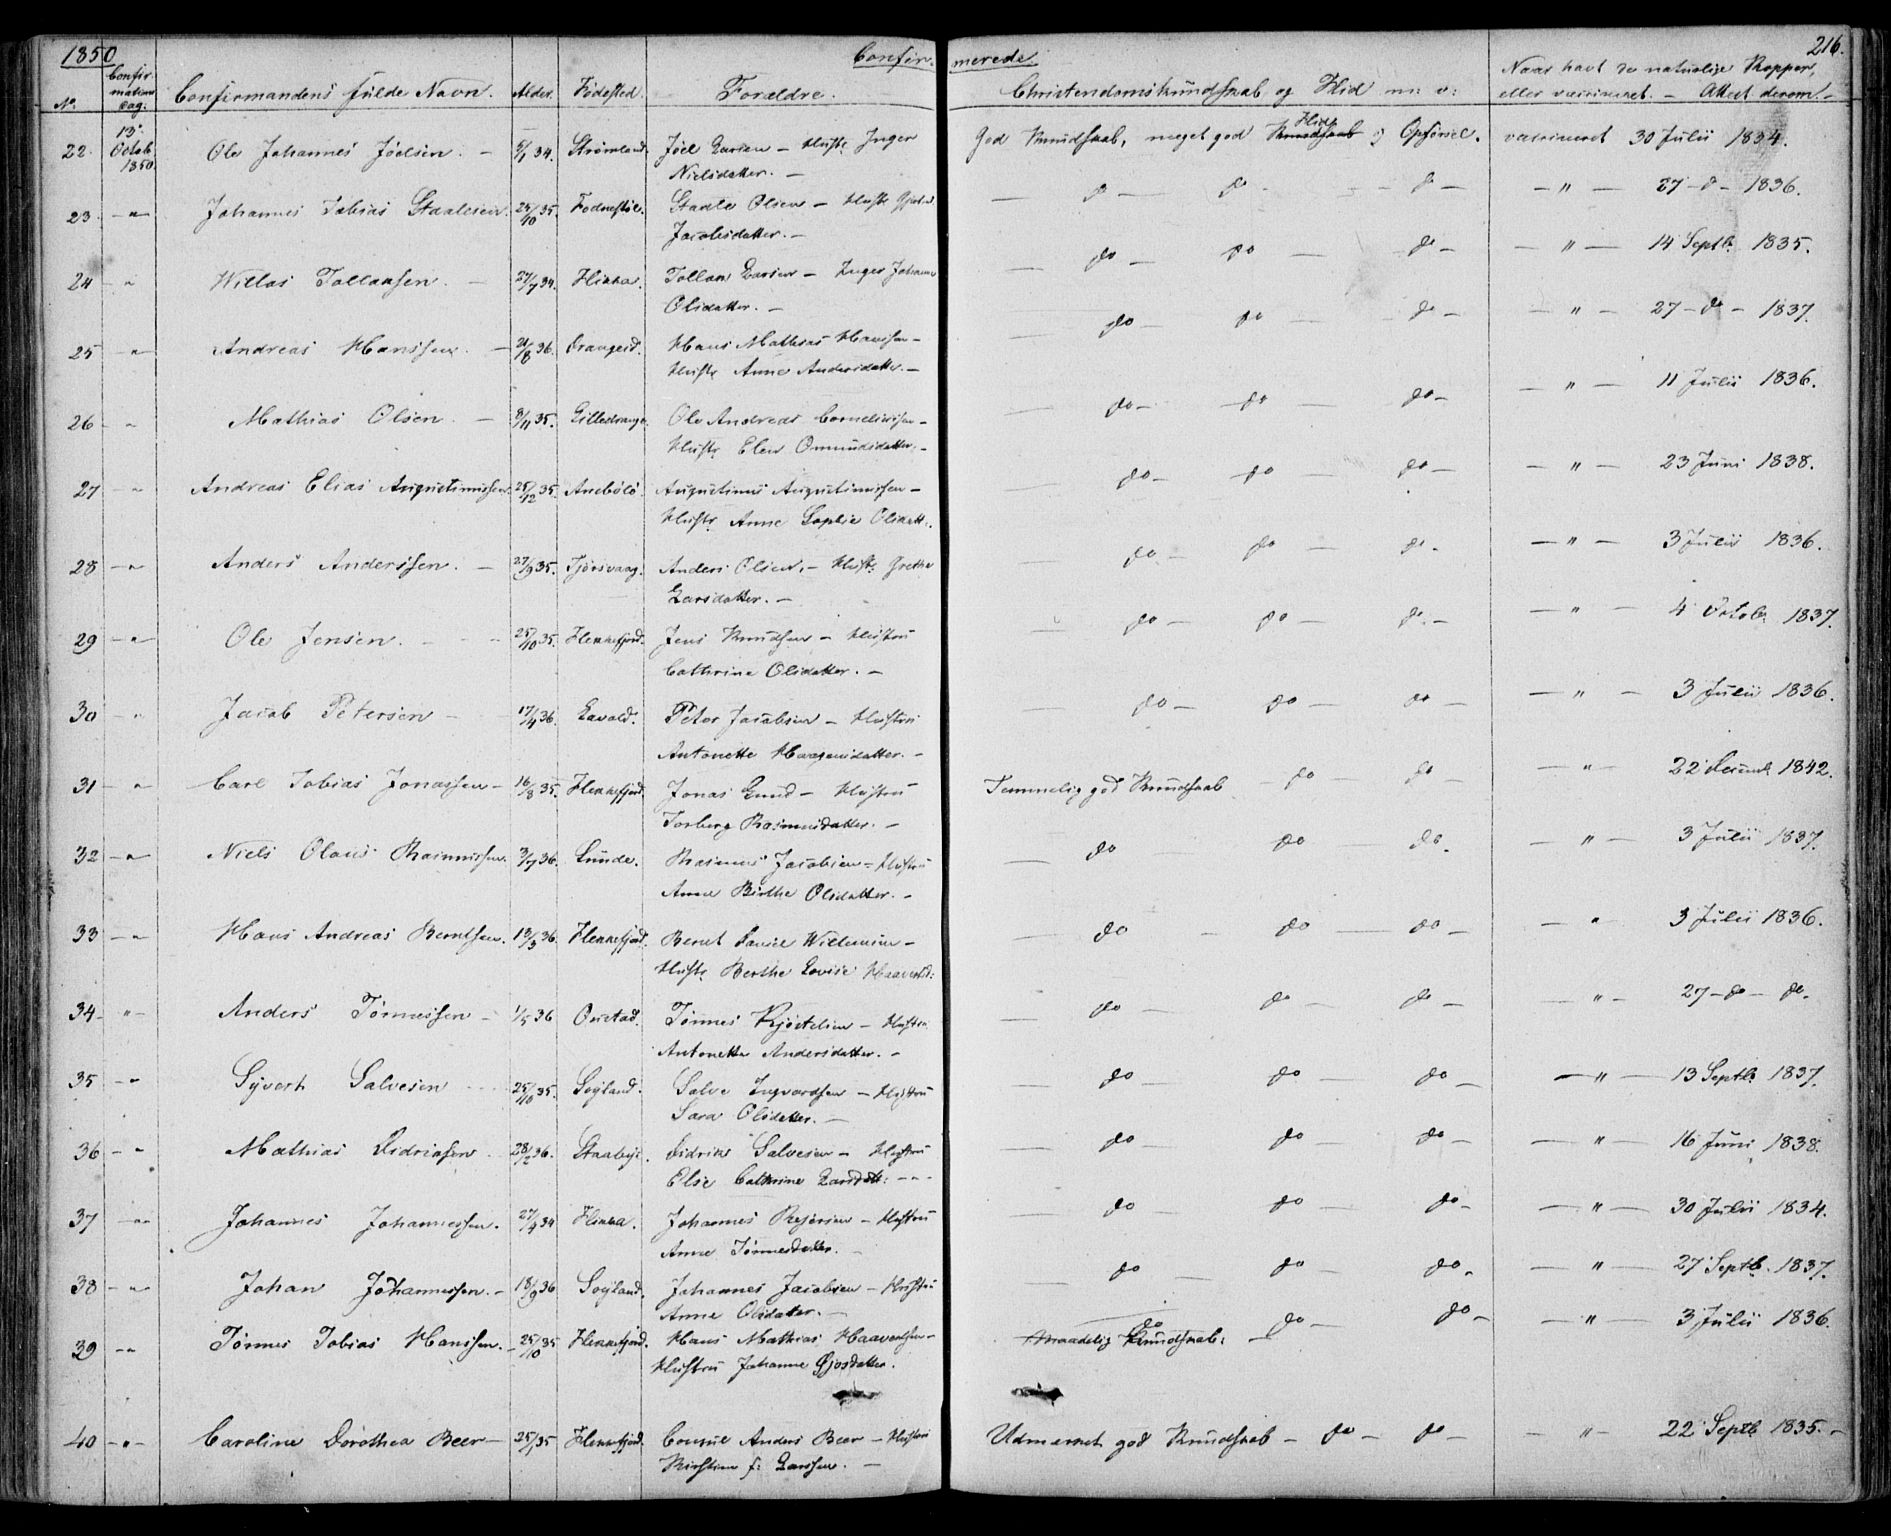 1850 Confirmerede 216.
No. Confirmations Dag. Confirmandens fulde Navn. Alder. Fødested. Forældre. Christendomskundskab og Flid m: v: Naar havt de naturlige Kopper,
eller vaccineret. – Attest derom. –
22. 13de Octob. 1850. Ole Johannes Joelsen. – 34. Strømland. Joel Larsen – Hustr. Inger God Kundskab, meget god Kundskab Flid og Opførsel. vaccineret 30 Julii 1834.
Nielsdatter. –
23 – " – Johannes Tobias Staalesen. 25/10 35. Fodnestøl. Staale Olsen – Hustr. – do – do – do – – " – 27 – d – 1836.
Jacobsdatter. –
24 – " Willas Tollaksen. – 27/7 34. Flikka. Tollak Larsen – Inger Johanne – do – do – do – – " – 14 Septb. 1835.
Olsdatter. –
25 – " – Andreas Hanssen. – 21/8 36. Drangeid. Hans Mathias Hanssen – – do – do – do – – " – 27 – do – 1837.
Hustr. Anne Andersdatter. –
26 – " Mathias Olsen. – 8/11 35. Lilledrange. Ole Andreas Corneliussen – – do – do – do – – " – 11 Julii 1836.
Hustr. Elen Omundsdatter. –
27 – " Andreas Elias Augustinussen. 25/12 35. Anebølø. Augustinus Augustinussen – – do – do – do – – " – 23 Juni 1838.
Hustr. Anne Sophie Olsdatt:.
28 – " – Anders Anderssen. – 27/9 35. Tjørsvaag. Anders Olsen. – Hustr. Grethe – do – do – do. – " – 3 Julii 1836.
Larsdatter. –
29 – " – Ole Jensen. – – 25/10 35. Flekkefjord. Jens Knudsen – Hustru – do – do – do. – – " – 4 Octob. 1837.
Cathrine Olsdatter. –
30 – " Jacob Petersen – 17/4 36. Lavold. Peter Jacobsen – Hustru – do – do – do – – " – 3 Julii 1836.
Antonette Haagensdatter. –
31 – " Carl Tobias Jonassen – 16/8 35. Flekkefjord. Jonas Lund – Hustru Temmelig god Kundskab – do – do – – " – 22 Decemb. 1842.
Torberg Rasmusdatter. –
32 – " – Niels Olaus Rasmussen. 3/7 36. Lunde. Rasmus Jacobsen – Hustru – do – do – do. – " – 3 Julii 1837.
Anne Birthe Olsdatter. –
33 – " – Hans Andreas Berntsen. 13/3 36. Flekkefjord. Bernt Daniel Willumsen – – do – do – do – – " – 3 Julii 1836.
Hustr. Berthe Lovise Haavorsd:
34 – " – Anders Tönnessen – 1/5 36 Onestad. Tönnes Kjøstelsen – Hustru – do – do – do – – " – 27 – do – do.
Antonette Andersdatter. –
35 – " Syvert Salvesen 25/10 35. Søyland. Salve Ingvardsen – Hustru – do – do – do – – " – 13 Septb. 1837.
Sara Olsdatter. –
36 – " Mathias Didriksen. 28/2 36. Staalesø. Didrik Salvesen – Hustru – do – do – do – – " – 16 Juni 1838.
Else Cathrine Larsdtt: –
37 – " – Johannes Johannessen. 27/4 34 Flikka. Johannes Rejersen – Hustru – do – do – do – – " – 30 Julii 1834.
Anne Tönnesdatter. –
38 – " – Johan Johannessen. – 18/9 36 Søyland. Johannes Jacobsen – Hustru – do – do – do. – " – 27 Septb. 1837.
Anne Olsdatter. –
39 – " Tönnes Tobias Hanssen. – 25/10 35 Flekkefjord. Hans Mathias Haavorsen – do Maadelig Kundskab: – do – do – – " – 3 Julii 1836.
Hustru Johanne Gjosdatter.
40 – " – Caroline Dorothea Beer – 25/1 35 Flekkefjord. Consul Anders Beer – Hustru Udmærket god Kundskab – do – do – – " – 22 Septb 1835. –
Kirstine f: Larssen. –